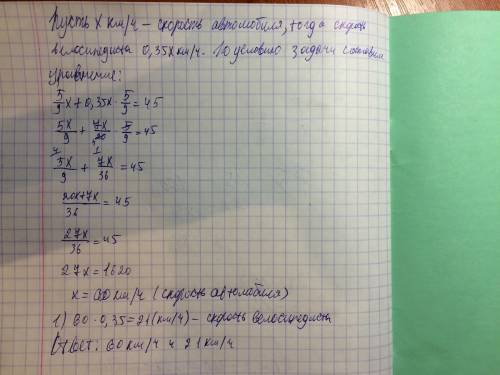 Пусть x км/ч – скорость автомобиля, тогда скорость
велосипедиста 0,35x км/ч. По условию задачи составим
уравнение:
5/9 x + 0,35x · 5/9 = 45
5x/9 + 7x/20 · 5/9 = 45
5x/9 + 7x/36 = 45
20x+7x/36 = 45
27x/36 = 45
27x = 1620
x = 60 км/ч (скорость автомобиля)
1) 60 · 0,35 = 21 (км/ч) – скорость велосипедиста
Ответ: 60 км/ч и 21 км/ч